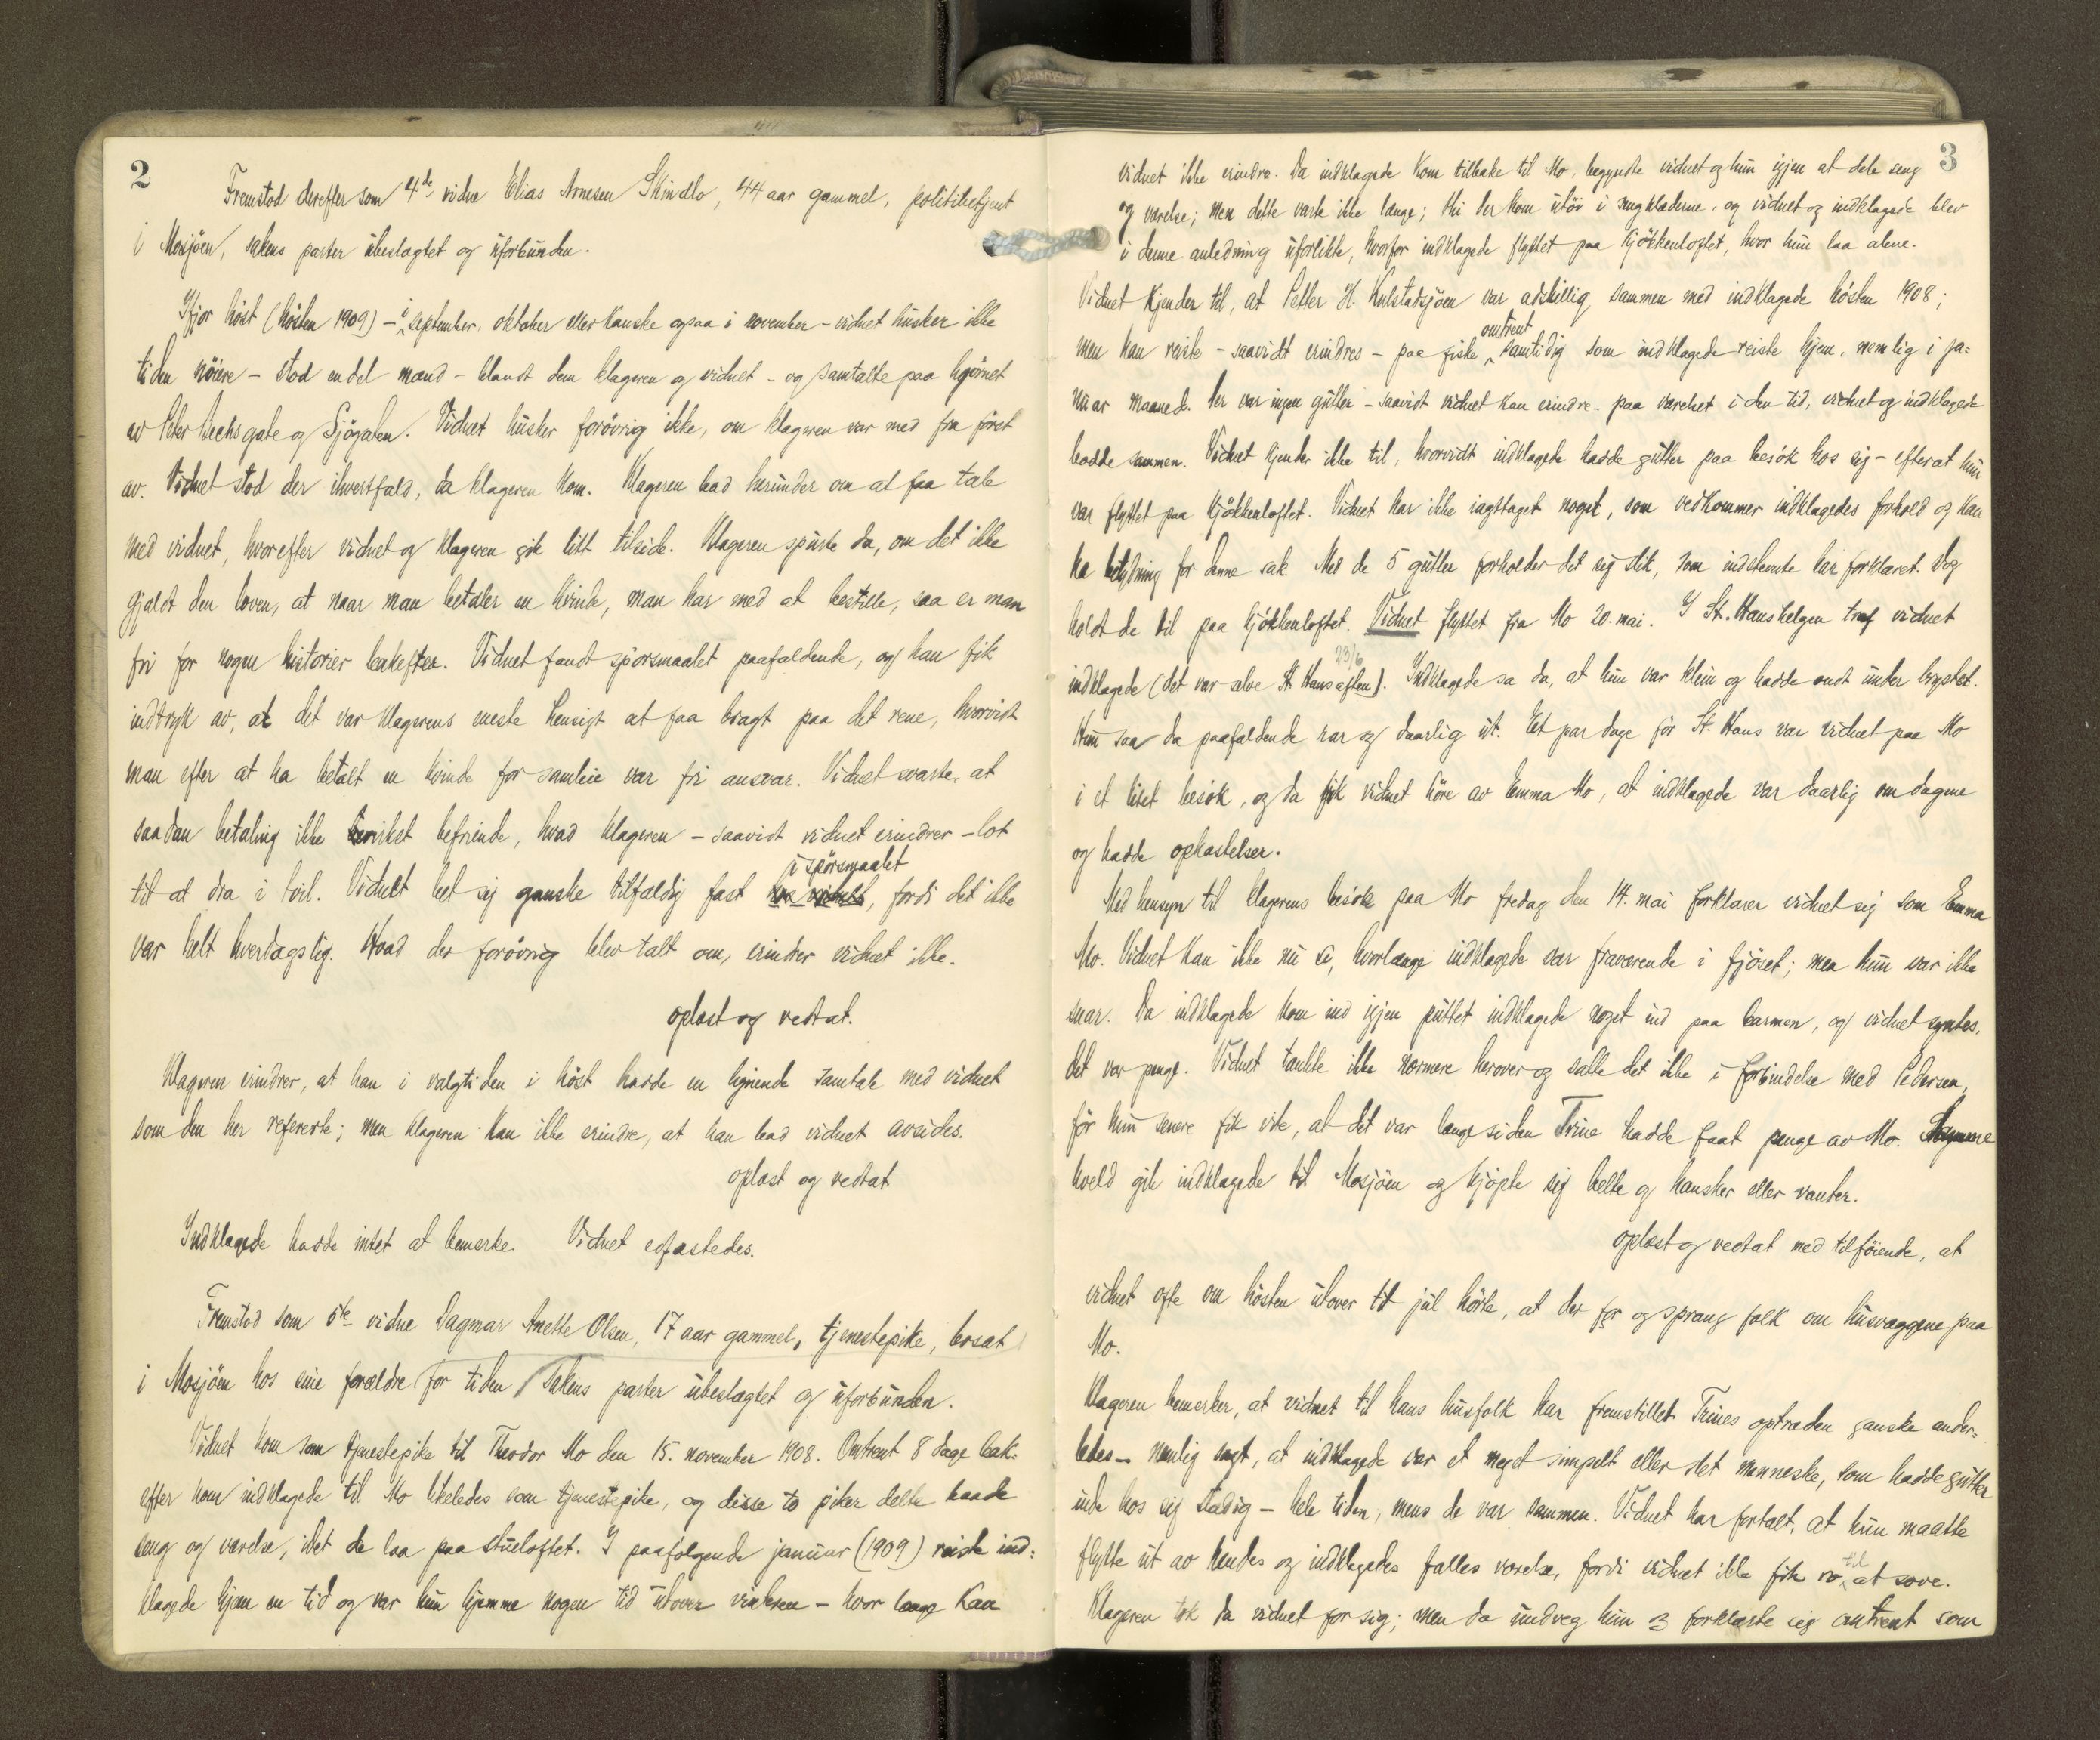 2
Fremstod derefter som 4de vidne Elias Arnesen Skindlo, 44 aar gammel, politibetjent
i Mosjöen, sakens parter ubeslegtet og uforbunden.
Ifjor höst (hösten 1909) – i september, oktober eller kanske ogsaa i november – vidnet husker ikke
tiden nöiere – stod endel mænd – blandt dem klageren og vidnet – og samtalte paa hjörnet
av Peter Bechs gate og Sjögaten. Vidnet husker forövrig ikke, om klageren var med fra först
av. Vidnet stod der ihvertfald, da klageren kom. Klageren bad herunder om at faa tale
med vidnet, hvorefter vidnet og klageren gik litt tilside. Klageren spurte da, om det ikke
gjaldt den loven, at naar man betaler en kvinde, man har med at bestille, saa er man
fri for nogen historier bakefter. Vidnet fandt spörsmaalet paafaldende, og han fik
indtryk av, at det var klagerens eneste hensigt at faa bragt paa det rene, hvorvidt
man efter at ha betalt en kvinde for samleie var fri ansvar. Vidnet svarte, at
saadan betaling ikke virket befriende, hvad klageren – saavidt vidnet erindrer – lot
til at dra i tvil. Vidnet bet sig ganske tilfældig fast i spörsmaalet, fordi det ikke
var helt hverdagslig. Hvad der forövrig blev talt om, erindrer vidnet ikke.
oplæst og vedtat.
Klageren erindrer, at han i valgtiden i höst hadde en lignende samtale med vidnet
som den her refererte; men klageren kan ikke erindre, at han bad vidnet avsides.
oplæst og vedtat
Indklagede hadde intet at bemerke. Vidnet edfæstedes.
Fremstod som 5te vidne Dagmar Anette Olsen, 17 aar gammel, tjenestepike, bosat
i Mosjöen hos sine forældre for tiden, sakens parter ubeslægtet og uforbunden.
Vidnet kom som tjenestepike til Theodor Mo den 15. november 1908. Omtrent 8 dage bak-
efter kom indklagede til Mo likeledes som tjenestepike, og disse to piker delte baade
seng og værelse, idet de laa paa stueloftet. I paafølgende januar (1909) reiste ind-
klagede hjem en tid og var hun hjemme nogen tid utover vinteren – hvor længe kan
3
vidnet ikke erindre. Da indklagede kom tilbake til Mo, begyndte vidnet og hun igjen at dele seng
og værelse; men dette varte ikke længe; thi der kom utöi i sengklæderne, og vidnet og indklagede blev
i denne anledning uforlikte, hvorfor indklagede flyttet paa kjökkenloftet, hvor hun laa alene.
Vidnet kjender til, at Petter H. Kulstadsjöen var adskillig sammen med indklagede hösten 1908;
men han reiste – saavidt erindres – paa fiske omtrent samtidig som indklagede reiste hjem, nemlig i ja-
nuar maaned. Der var ingen gutter – saavidt vidnet kan erindre – paa værelset i den tid, vidnet og indklagede
bodde sammen. Vidnet kjender ikke til, hvorvidt indklagede hadde gutter paa besök hos sig – efterat hun
var flyttet paa kjökkenloftet. Vidnet har ikke iagttaget noget, som vedkommer indklagedes forhold og kan
ha betydning for denne sak. Med de 5 gutter forholder det sig slik, som indstevnte har forklaret. Dog
holdt de til paa kjökkenloftet. Vidnet flyttet fra Mo 20. mai. I St. Hanshelgen traf vidnet
23/6
indklagede (det var selve St Hansaften). Indklagede sa da, at hun var klein og hadde ondt under brystet.
Hun saa da paafaldende rar og daarlig ut. Et par dage för St. Hans var vidnet paa Mo
i et litet besök, og da fik vidnet höre av Emma Mo, at indklagede var daarlig om dagene
og hadde opkastelser.
Med hensyn til klagerens besök paa Mo fredag den 14. mai forklarer vidnet sig som Emma
Mo. Vidnet kan ikke nu si, hvorlænge indklagede var fraværende i fjöset; men hun var ikke
snar. Da indklagede kom ind igjen puttet indklagede noget ind paa barmen, og vidnet syntes,
det var penge. Vidnet tænkte ikke nærmere herover og satte det ikke i forbindelse med Pedersen,
för hun senere fik vite, at det var længe siden Trine hadde faat penge av Mo. Samme
kveld gik indklagede til Mosjöen og kjöpte sig belte og hansker eller vanter.
oplæst og vedtat med tilföiende, at
vidnet ofte om hösten utover til jul hörte, at der for og sprang folk om husvæggene paa
Mo.
Klageren bemerker, at vidnet til hans husfolk har fremstillet Trines optræden ganske ander-
ledes – nemlig sagt, at indklagede var et meget simpelt eller slet menneske, som hadde gutter
inde hos sig stadig – hele tiden, mens de var sammen. Vidnet har fortalt, at hun maatte
flytte ut av hendes og indklagedes fælles værelse, fordi vidnet ikke fik ro til at sove.
Klageren tok da vidnet for sig; men da undveg hun og forklarte sig omtrent som